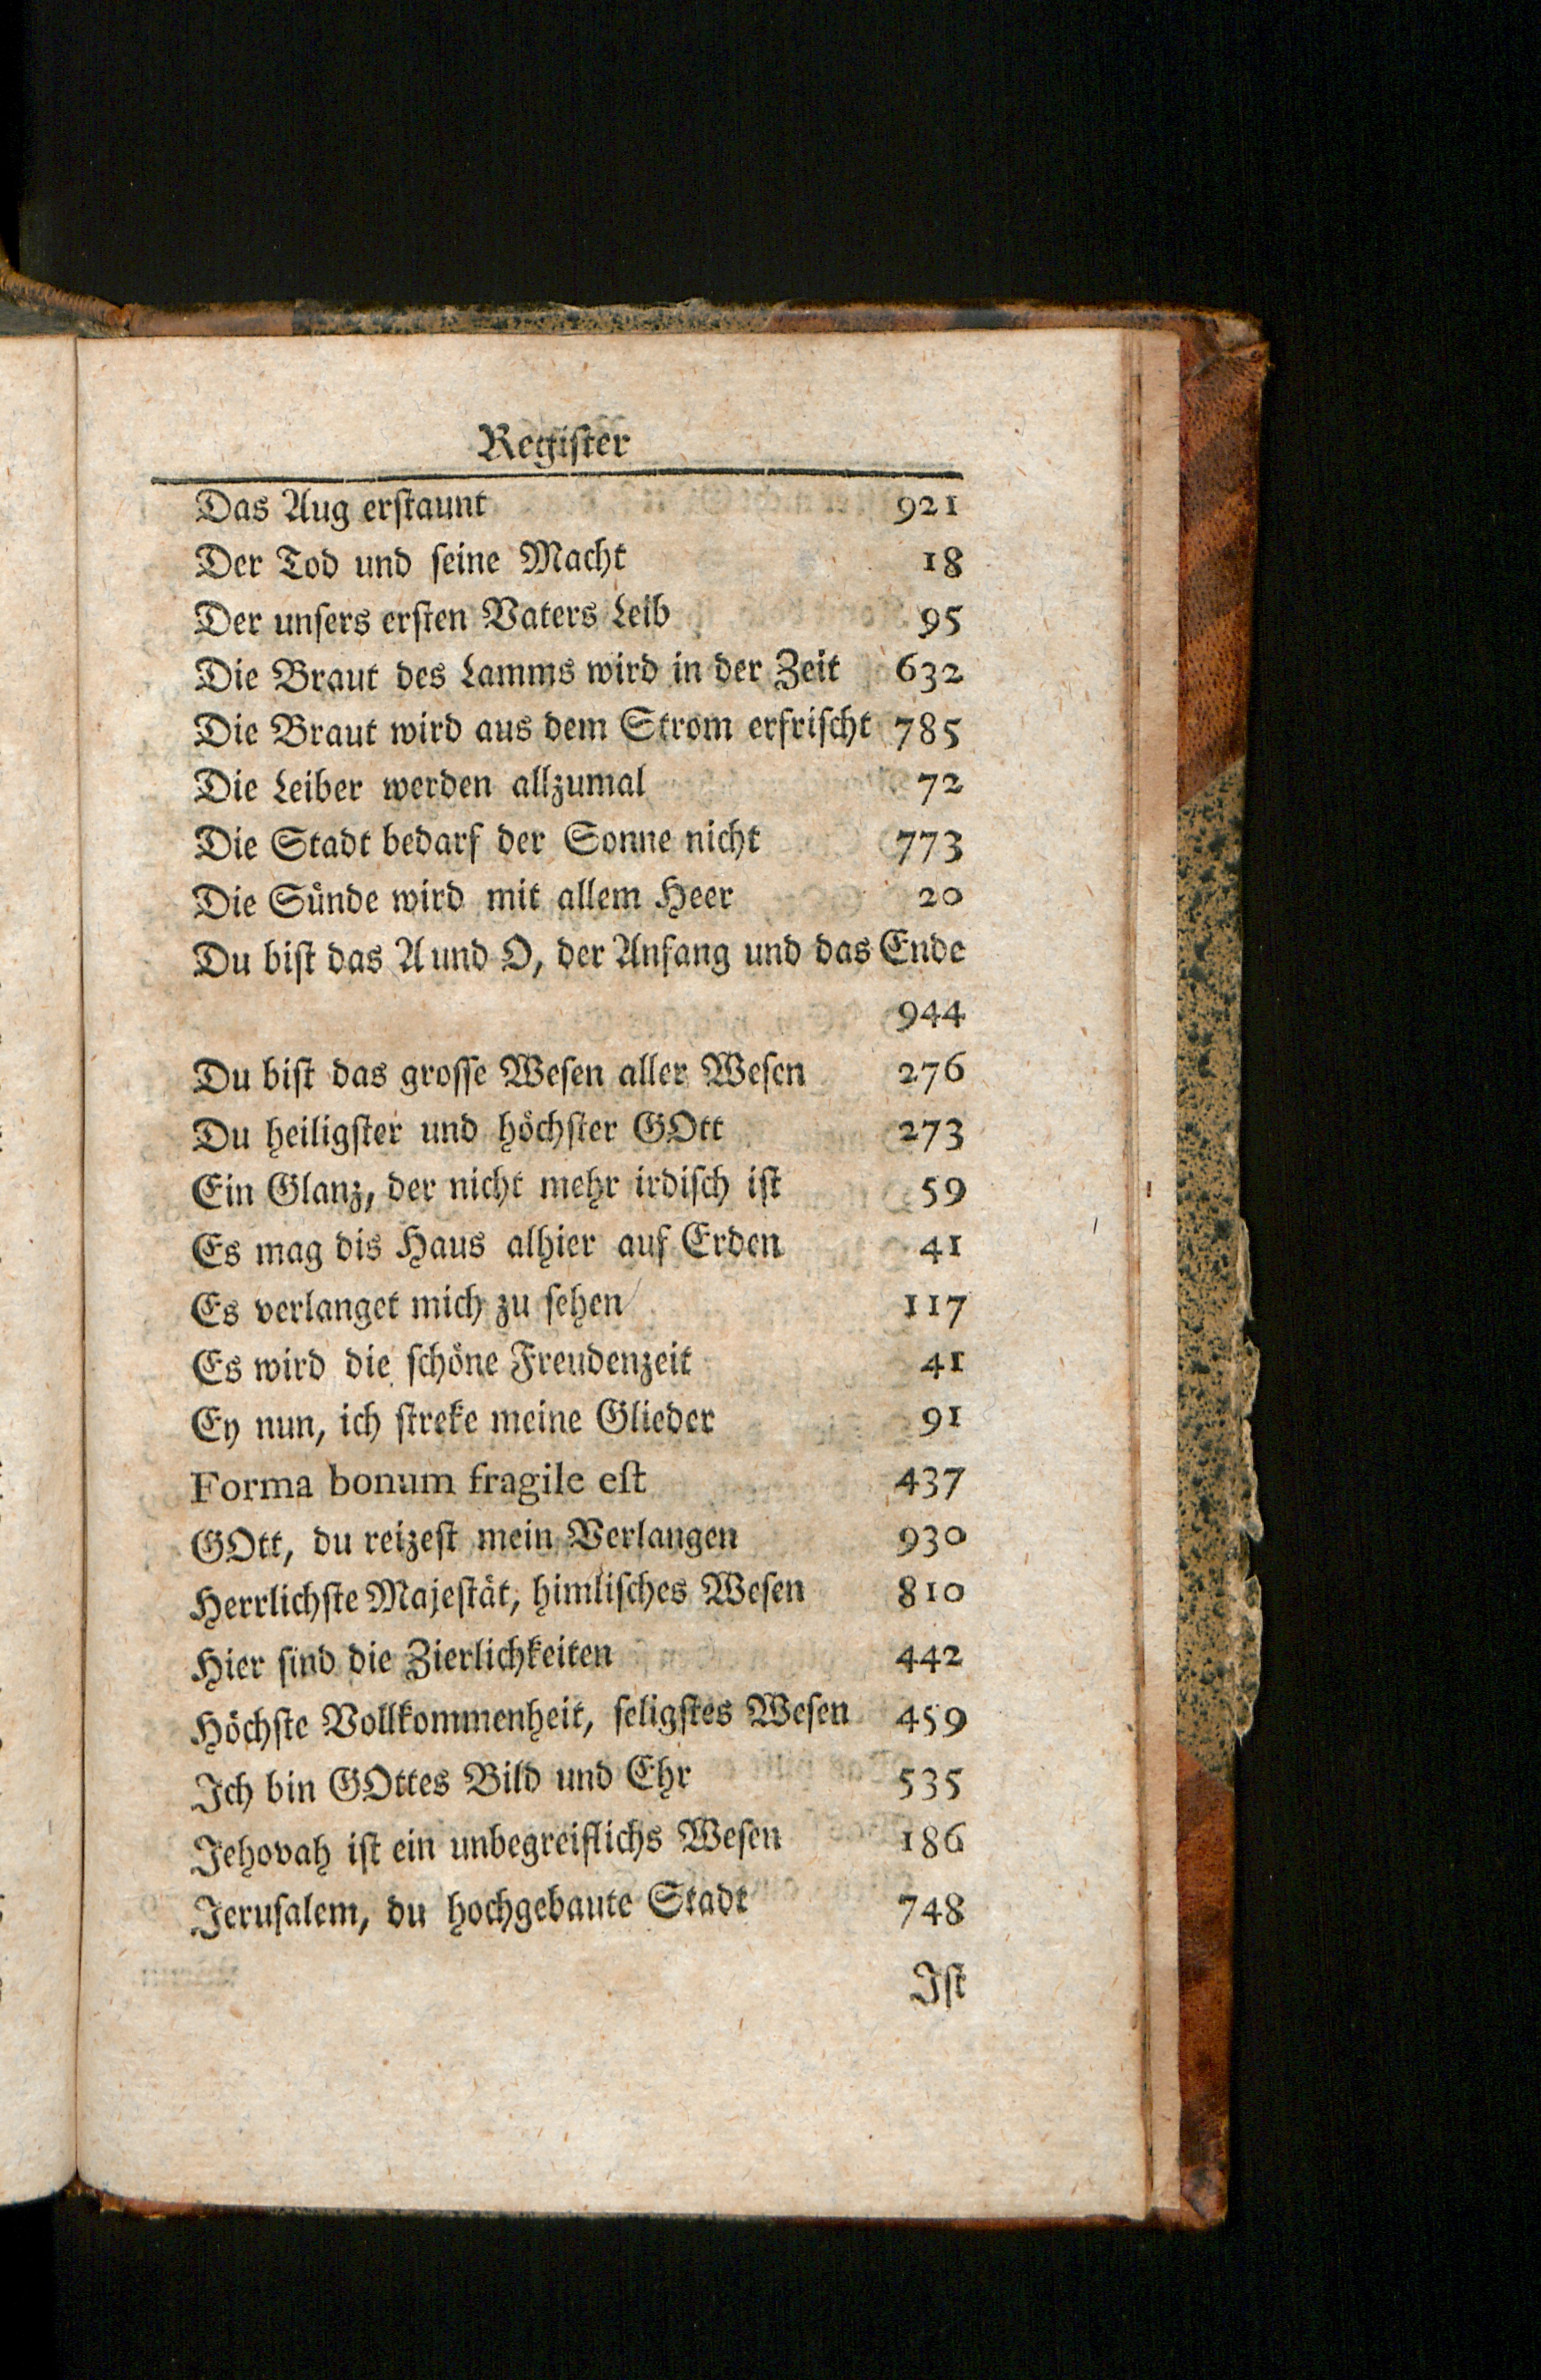 Regiſter
Das Aug erſtaunt 921
Der Tod und ſeine Macht 18
Der unſers erſten Vaters Leib 95
Die Braut des Lamms wird in der Zeit 632
Die Braut wird aus dem Strom erfriſcht 785
Die Leiber werden allzumal 72
Die Stadt bedarf der Sonne nicht 773
Die Sünde wird mit allem Heer 20
Du biſt das A und O, der Anfang und das Ende
944
Du biſt das groſſe Weſen aller Weſen 276
Du heiligſter und höchſter GOtt 273
Ein Glanz, der nicht mehr irdiſch iſt 59
Es mag dis Haus alhier auf Erden 41
Es verlanget mich zu ſehen 117
Es wird die ſchöne Freudenzeit 41
Ey nun, ich ſtreke meine Glieder 91
Forma bonum fragile eſt 437
GOtt, du reizeſt mein Verlangen 930
Herrlichſte Majeſtät, himliſches Weſen 810
Hier ſind die Zierlichkeiten 442
Höchſte Vollkommenheit, ſeligſtes Weſen 459
Ich bin GOttes Bild und Ehr 535
Jehovah iſt ein unbegreiflichs Weſen 186
Jeruſalem, du hochgebaute Stadt 748
Iſt